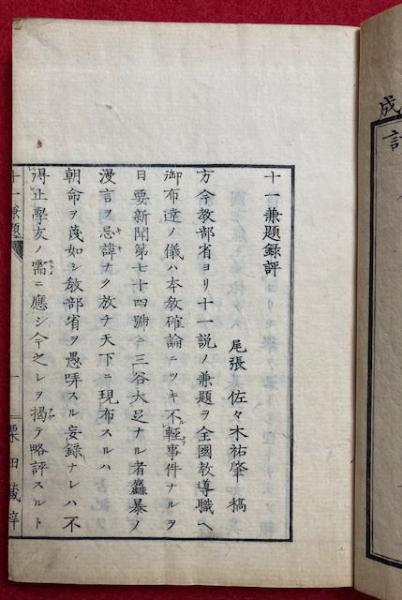 十一兼題録評
尾張 佐々木祐肇 稿
方今教部省ヨリ十一説ノ兼題ヲ全國教導職ヘ
御布達ノ儀ハ本教確論ニツキ不輕事件ナルヲ
日要新聞第七十四號ニ三谷大足ナル者麤暴ノ
漫言ヲ忌諱ナク放チ天下ニ現布スルハ
朝命ヲ蔑如シ教部省ヲ愚弄スル妄録ナレハ不
得止學友ノ需ニ應シ今之レヲ掲テ略評スルト
十一兼題
一
栗田蔵梓
成
言